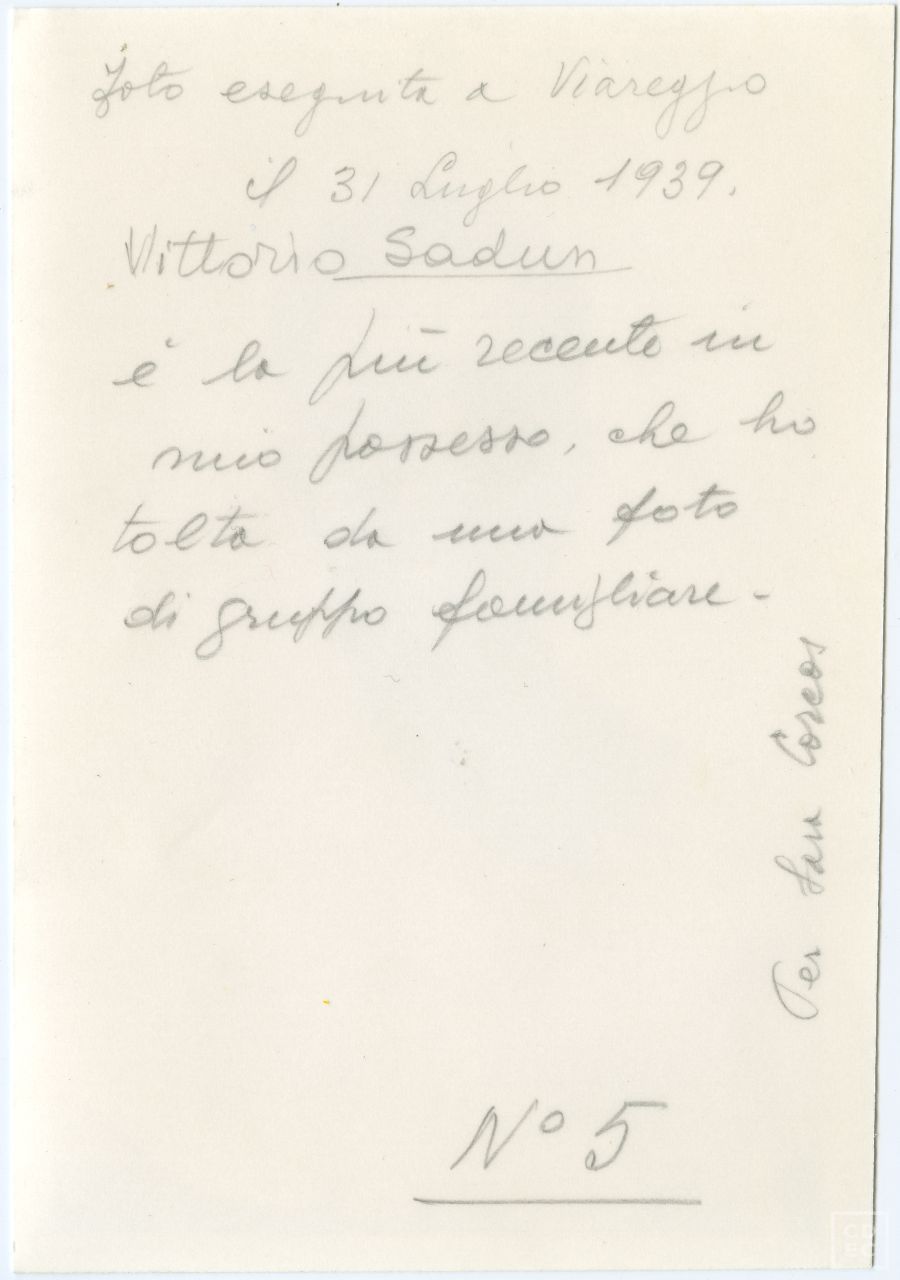 Foto eseguita a Viareggio
il 31 Luglio 1939.
Vittorio Sadun
è la più recente in
mio possesso, che ho
tolta da una foto
di gruppo famigliare -
Per Corcos
N° 5
CD
EC